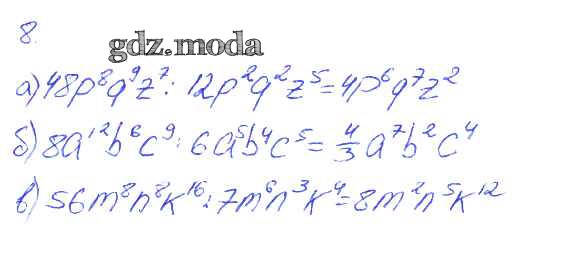 8.
gdz.moda
а) 48p⁸q⁹z⁷ : 12p²q²z⁵ = 4p⁶q⁷z²
б) 8a¹²b⁶c⁹ : 6a⁵b⁴c⁵ = 4/3 a⁷b²c⁴
в) 56m⁸n⁸k¹⁶ : 7m⁶n³k⁴ = 8m²n⁵k¹²